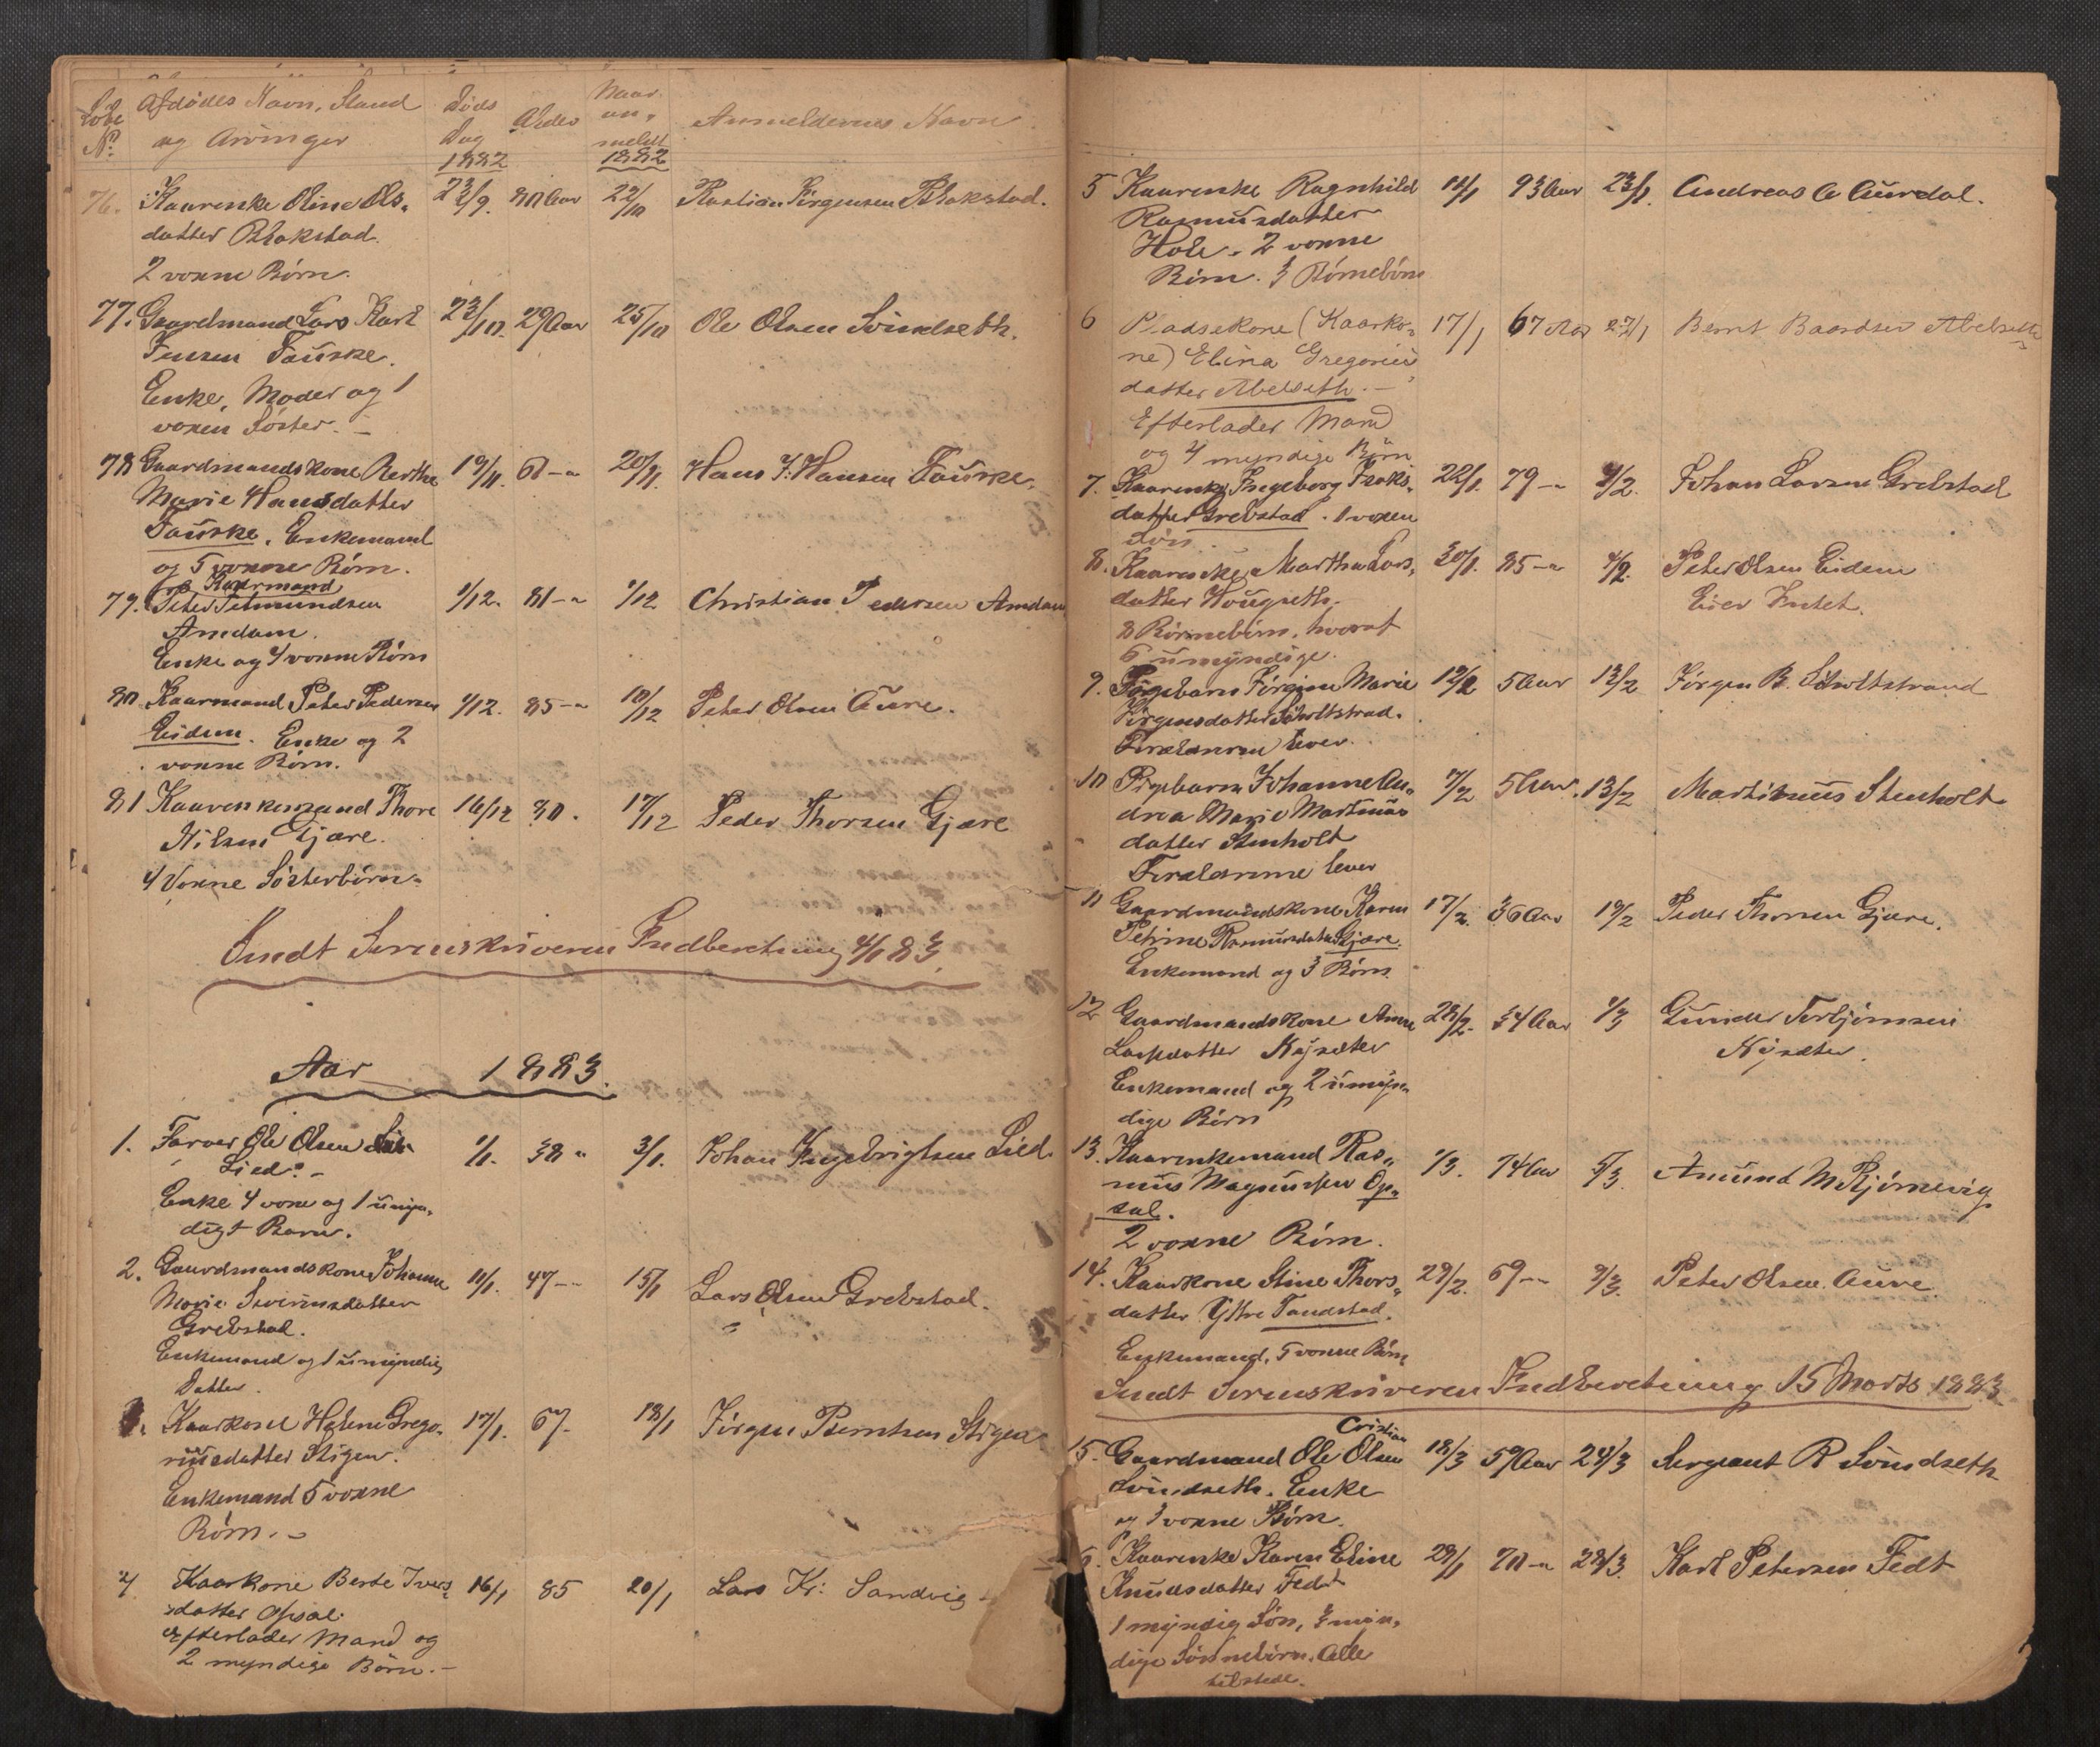 Løbe No. Afdødes Navn, Stand og Arvinger Døds Dag 1882 Alder Naar anmeldt 1882 Anmelderens Navn
76. Kaarenke Oline Ols- 80 Aar 22/10 Bastian Jørgensen Blakstad.
datter Blakstad.
2 voxne Børn.
77. Gaardmand Lars Karl 23/10. 29 Aar 25/10 Ole Olsen Svindseth.
Jensen Fauske.
Enke, Moder og 1
voxen Søster. -
78 Gaardmandskone Berthe 19/11. 20/11. Hans J. Hansen Fauske.
Marie Hansdatter
Fauske. Enkemand
og 5 voxne Børn.
Kaarmand
79. Peter Amundsen 1/12. 81 - " 1/12 Christian Pedersen Amdam
Amdam.
Enke og 4 voxne Børn
80. Kaarmand Peter Pedersen 4/12. 85 - " 10/12 Peter Olsen Aure.
Eidem. Enke og 2
voxne Børn.
81 Kaarenkemand Thore 16/12 80. 17/12 Peder Thorsen Gjære
Nilsen Gjære.
4 Voxne Søsterbørn.
Sendt Sorenskriveren Indberetning 4/1 83.
Aar 1883.
1. Farver Ole Olsen 1/1. 38 " 3/1. Johan Ingebrigtsen Lied.
Lied. -
Enke 4 voxne og 1 umyn-
digt Barn.
2. Gaardmandskone Johanne 11/1. 47 - " 15/1 Lars Olsen Grebstad.
Marie Severinsdatter
Grebstad.
Enkemand og 1 umyndig
Datter.
3. Kaarkone Helene Grego- 17/1. 67 - 18/1 Jørgen Berntsen Stigen
riusdatter Stigen.
Enkemand 5 voxne
Børn. -
4 Kaarkone Berte Ivers- 16/1 85 20/1 Lars Kr: Sandvig
datter Opsal.
Efterlader Mand og
2 myndige Børn. -
5 Kaarenke Ragnhild 18/1 93 Aar 23/1. Andreas A Aurdal.
Rasmusdatter
Hole. 2 voxne
Børn. 3 Børnebørn
6 Pladsekone (Kaarko- 17/1 67 Aar 27/1 Bernt Baardsen Abelseth
ne) Elina Gregorius
datter Abelseth. -
Efterlader Mand
og 4 myndige Børn
7. Kaarenke Ingeborg Isaks- 22/1. 79 - " 4/2. Johan Larsen Grebstad
datter Grebstad. 1 voxen
Søn.
8. Kaarenke Martha Lars- 30/1. 85 - " 4/2. Peter Olsen Eidem
datter Hougseth. Eier Intet.
8 Børnebørn, hvoraf
6 umyndige.
9. Pigebarn Jørgine Marie 12/2 5 Aar 13/2 Jørgen B. Sholtstrand
Jørgensdatter Sholtstrand.
Forældrene lever.
10 Pigebarn Johanne An- 7/2 5 Aar. 13/2 Martinus Stenholt
drea Marie Martinus
datter Stenholt
Forældrene lever
11 Gaardmandskone Karen 17/2. 36 Aar 19/2 Peder Thorsen Gjære.
Petrine Rasmusdatter Gjære.
Enkemand og 3 Børn.
12 Gaardmandskone Anne 28/2. 34 Aar 1/3 Gunder Torbjørnsen
Larsdatter Nysæter Nysæter.
Enkemand og 2 umyn-
dige Børn
13. Kaarenkemand Ras- 1/3. 74 Aar 5/3. Amund M Bjørnevig
mus Magnussen Op-
sal.
2 voxne Børn.
14. Kaarkone Stine Thors- 28/2. 69 - " 9/3. Peter Olsen Aure.
datter Ytre Tandstad.
Enkemand, 5 voxne Børn
Sendt Sorenskriveren Indberetning 15 Marts 1883
Cristian
15. Gaardmand Ole Olsen 18/3 59 Aar 24/3 Sergeant R Svindseth
Svindseth. Enke
og 3 voxne Børn.
6. Kaarenke Karen Eline 29/1 70 - " 28/3. Karl Petersen Fedt
Knudsdatter Fedt
1 myndig Søn, 3 myn-
dige Sønnebørn. Alle
tilstede.